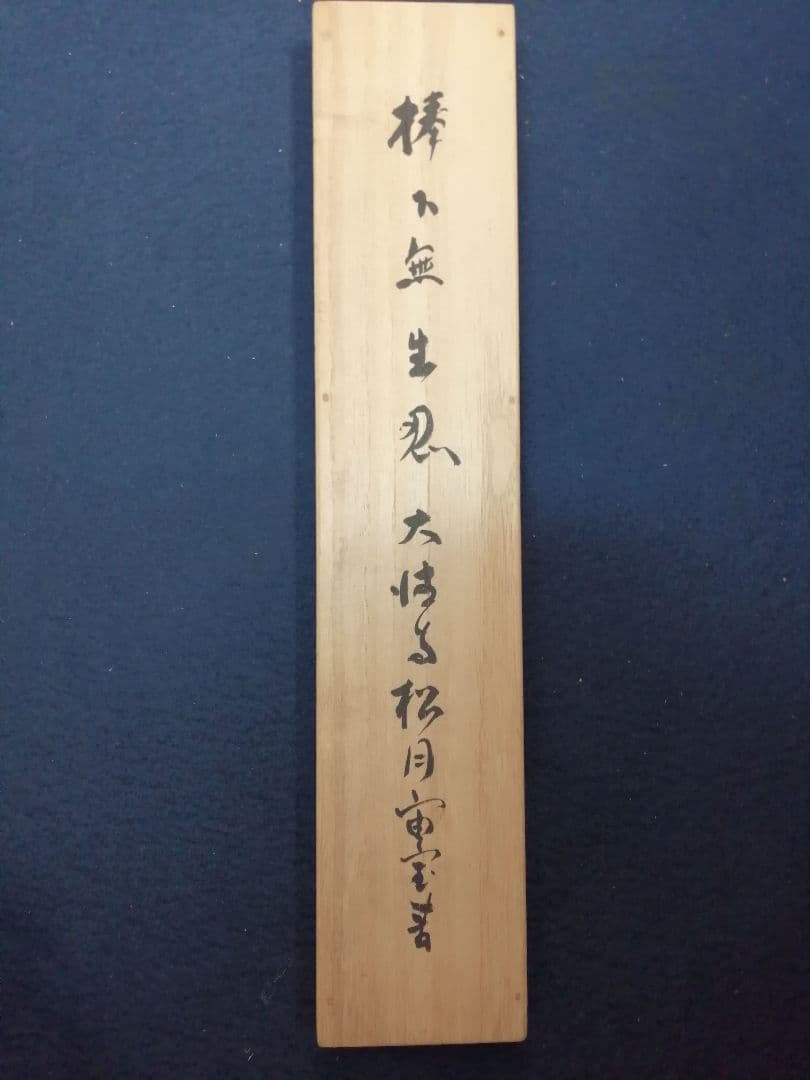 棒下無生忍 大徳寺松月宙宝書